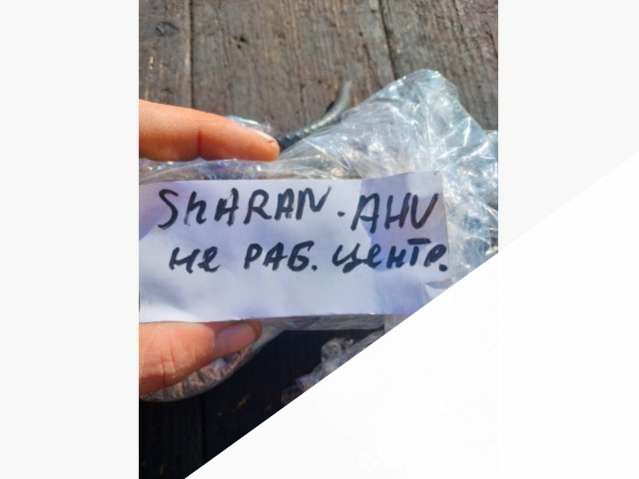 SHARAN. AHU
не РАБ. центр.